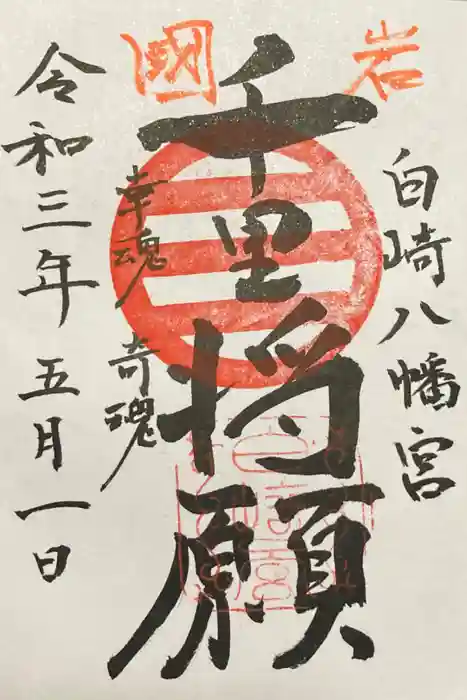 岩國
白崎八幡宮
千里将願
幸魂 奇魂
令和三年 五月一日